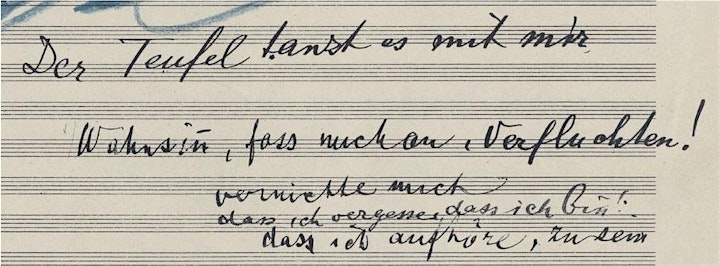 Der Teufel tanzt es mit mir
Wahnsin̄, fass mich an, Verfluchten!
vernichte mich
dass ich vergesse, dass ich bin!
dass ich aufhöre, zu sein